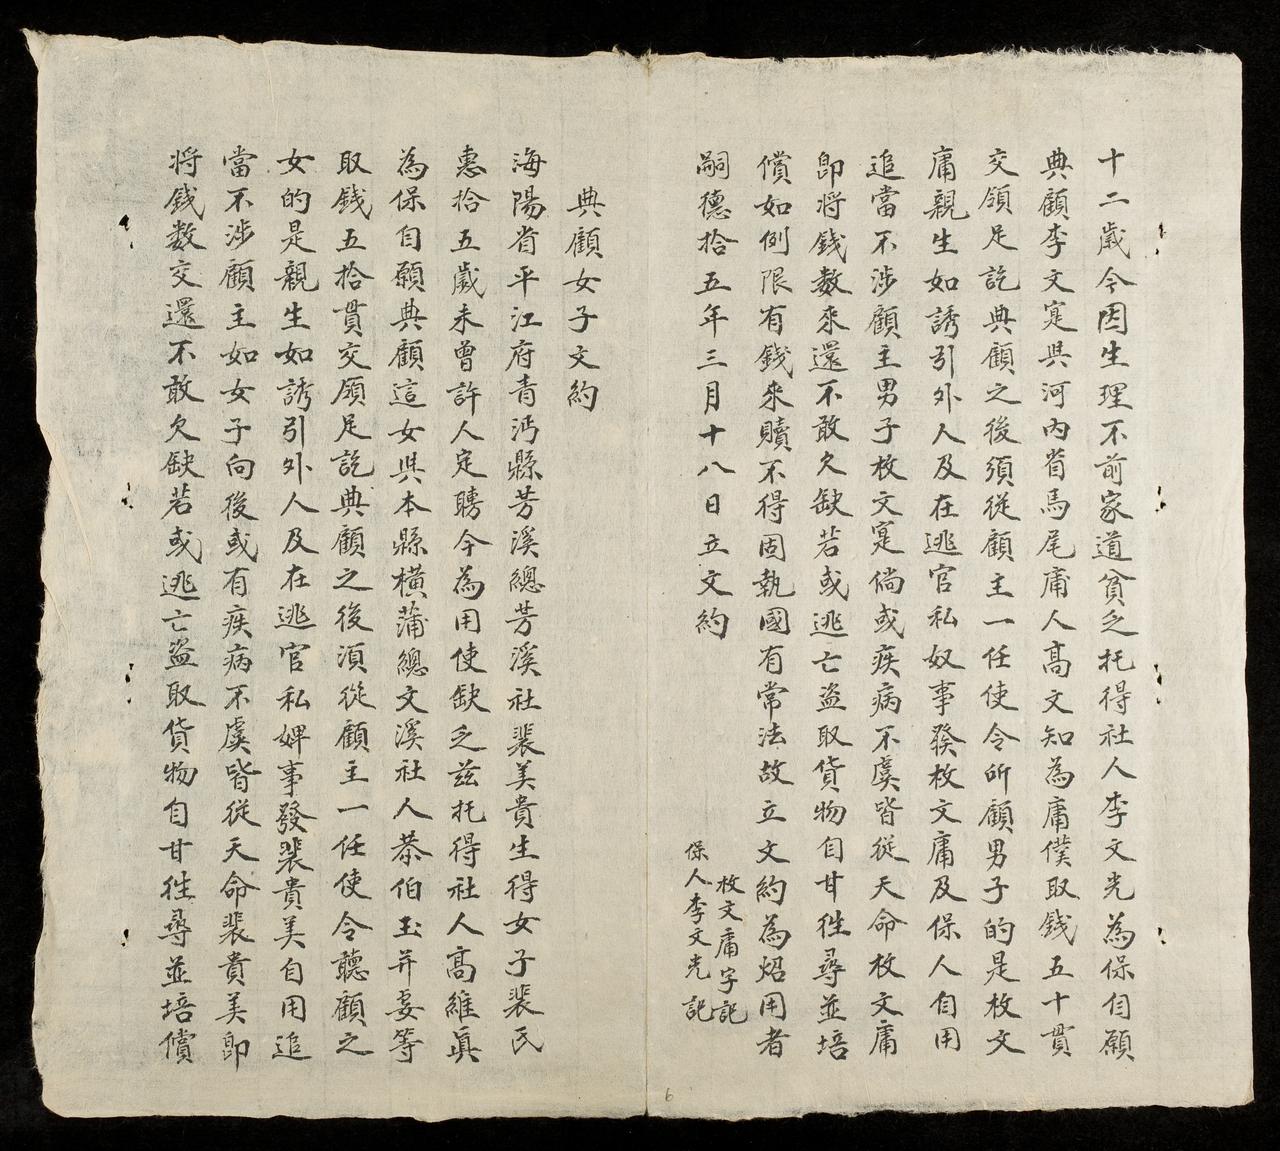 十二歲今因生理不前家道貧乏托得社人李文光為保自願
典顧李文寔與河內省馬尾庯人高文知為庸僕取銭五十貫
交領足訖典顧之後須從顧主一任使令所顧男子的是枚文
庸親生如誘引外人及在逃官私奴事發枚文庸及保人自用
追當不涉顧主男子枚文寔倘或疾病不虞皆從天命枚文庸
即将錢数來還不敢欠缺若或逃亡盗取貨物自甘徃尋並培
償如例限有錢來贖不得固執國有常法故立文約為炤用者
嗣德拾五年三月十八日立文約
枚文庸字記
保人李文光記
典顧女子文約
海陽省平江府青沔縣芳溪總芳溪社裴美貴生得女子裴氏
惠拾五歲未曾許人定聘今為用使缺乏茲托得社人高維眞
為保自願典顧這女與本縣橫蒲總文溪社人恭伯玉并妾等
取錢五拾貫交領足訖典顧之後須從顧主一任使令聽顧之
女的是親生如誘引外人及在逃官私婢事發裴貴美自用追
當不涉顧主如女子向後或有疾病不虞皆從天命裴貴美即
将錢数交還不敢欠缺若或逃亡盗取貨物自甘徃尋並培償
6